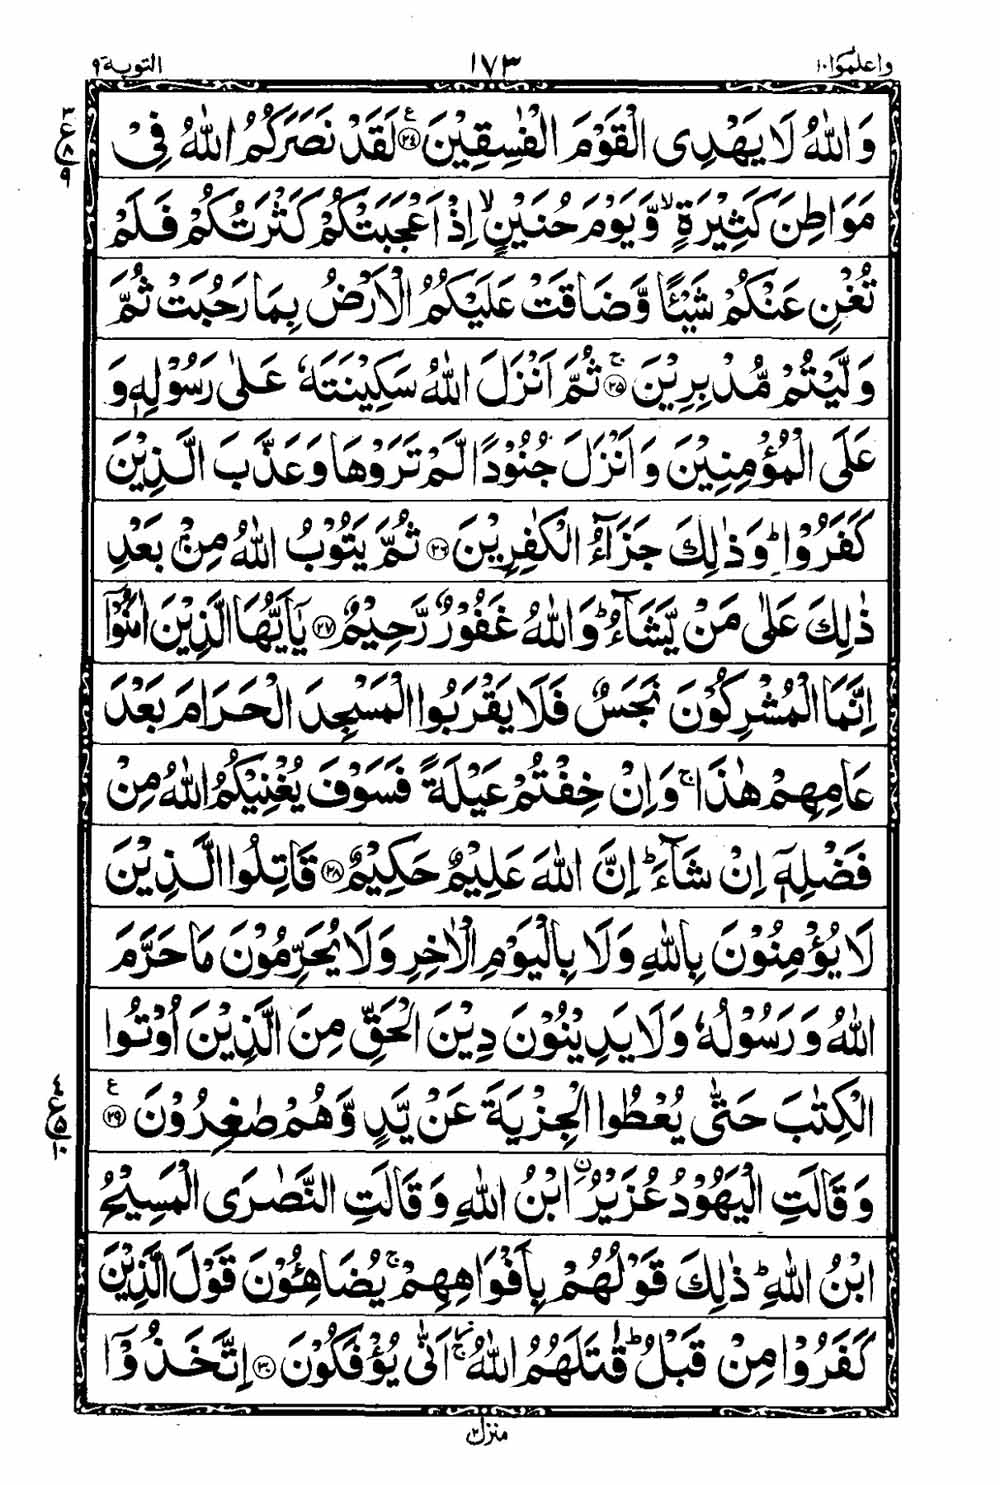 واعلموا ١٠ ١٧٣ التوبة ٩
وَاللّٰهُ لَا يَهْدِى الْقَوْمَ الْفٰسِقِيْنَ ﴿٢٤﴾ؑ لَقَدْ نَصَرَكُمُ اللّٰهُ فِىْ
مَوَاطِنَ كَثِيْرَةٍ ۙ وَّيَوْمَ حُنَيْنٍ ۙ اِذْ اَعْجَبَتْكُمْ كَثْرَتُكُمْ فَلَمْ
تُغْنِ عَنْكُمْ شَيْـًٔا وَّضَاقَتْ عَلَيْكُمُ الْاَرْضُ بِمَا رَحُبَتْ ثُمَّ
وَلَّيْتُمْ مُّدْبِرِيْنَ ﴿٢٥﴾ۚ ثُمَّ اَنْزَلَ اللّٰهُ سَكِيْنَتَهٗ عَلٰى رَسُوْلِهٖ وَ
عَلَى الْمُؤْمِنِيْنَ وَاَنْزَلَ جُنُوْدًا لَّمْ تَرَوْهَا وَعَذَّبَ الَّذِيْنَ
كَفَرُوْا ؕ وَذٰلِكَ جَزَآءُ الْكٰفِرِيْنَ ﴿٢٦﴾ ثُمَّ يَتُوْبُ اللّٰهُ مِنْۢ بَعْدِ
ذٰلِكَ عَلٰى مَنْ يَّشَآءُ ؕ وَاللّٰهُ غَفُوْرٌ رَّحِيْمٌ ﴿٢٧﴾ يٰٓاَيُّهَا الَّذِيْنَ اٰمَنُوْٓا
اِنَّمَا الْمُشْرِكُوْنَ نَجَسٌ فَلَا يَقْرَبُوا الْمَسْجِدَ الْحَرَامَ بَعْدَ
عَامِهِمْ هٰذَا ۚ وَاِنْ خِفْتُمْ عَيْلَةً فَسَوْفَ يُغْنِيْكُمُ اللّٰهُ مِنْ
فَضْلِهٖٓ اِنْ شَآءَ ؕ اِنَّ اللّٰهَ عَلِيْمٌ حَكِيْمٌ ﴿٢٨﴾ قَاتِلُوا الَّذِيْنَ
لَا يُؤْمِنُوْنَ بِاللّٰهِ وَلَا بِالْيَوْمِ الْاٰخِرِ وَلَا يُحَرِّمُوْنَ مَا حَرَّمَ
اللّٰهُ وَرَسُوْلُهٗ وَلَا يَدِيْنُوْنَ دِيْنَ الْحَقِّ مِنَ الَّذِيْنَ اُوْتُوا
الْكِتٰبَ حَتّٰى يُعْطُوا الْجِزْيَةَ عَنْ يَّدٍ وَّهُمْ صٰغِرُوْنَ ﴿٢٩﴾ؑ
وَقَالَتِ الْيَهُوْدُ عُزَيْرُ ۨابْنُ اللّٰهِ وَقَالَتِ النَّصٰرَى الْمَسِيْحُ
ابْنُ اللّٰهِ ؕ ذٰلِكَ قَوْلُهُمْ بِاَفْوَاهِهِمْ ۚ يُضَاهِـُٔوْنَ قَوْلَ الَّذِيْنَ
كَفَرُوْا مِنْ قَبْلُ ؕ قٰتَلَهُمُ اللّٰهُ ۚ اَنّٰى يُؤْفَكُوْنَ ﴿٣٠﴾ اِتَّخَذُوْٓا
منزل ٢